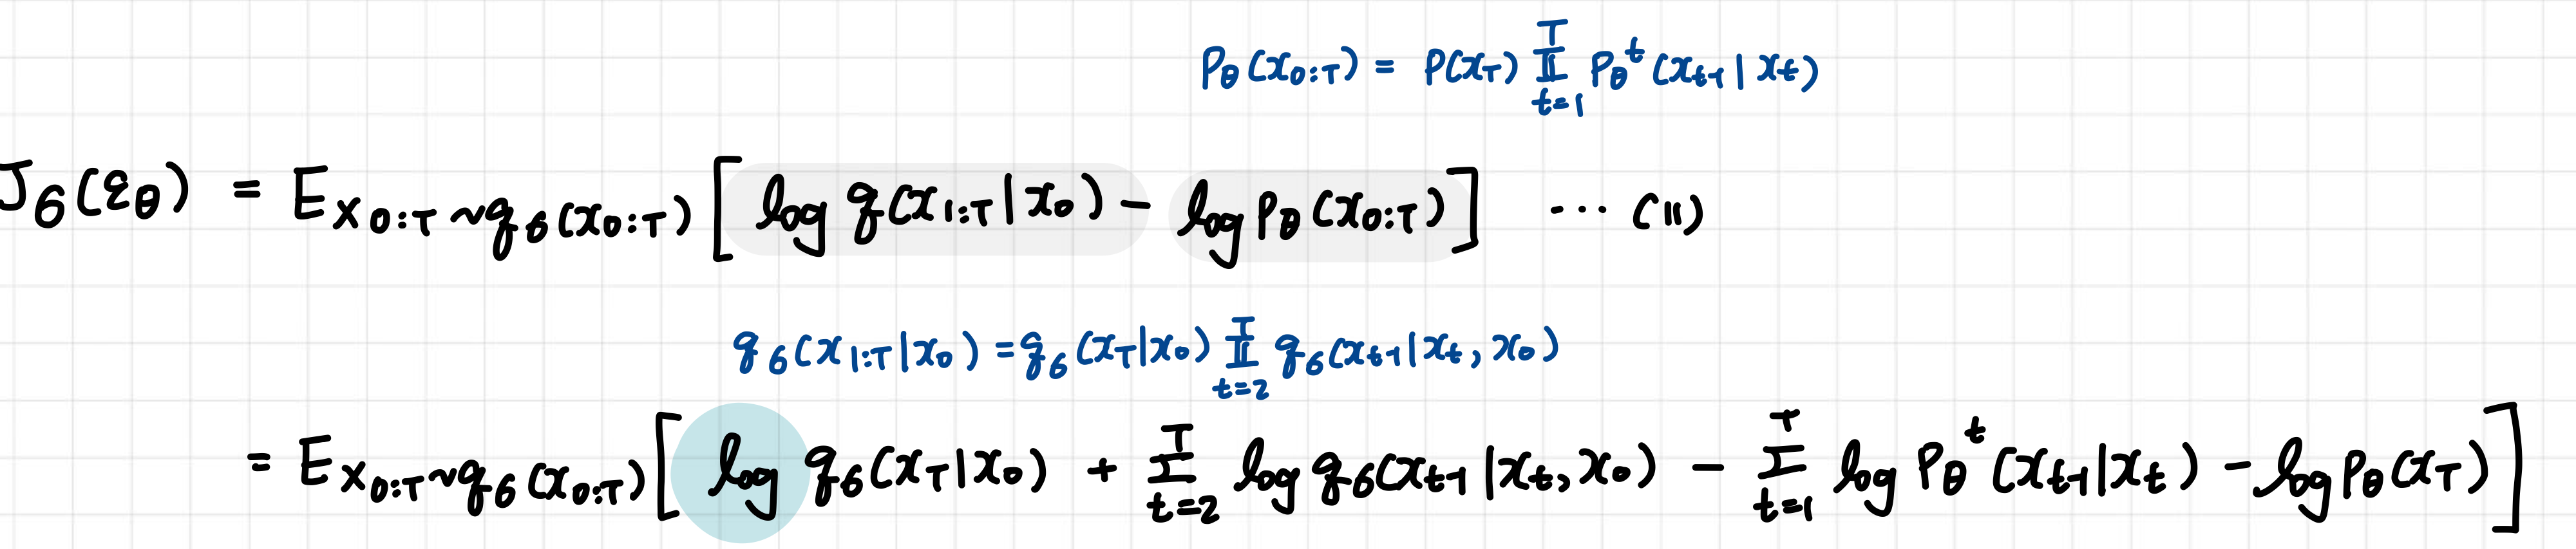 P_θ(x_{0:T}) = P(x_T) ∏_{t=1}^{T} P_θ^t(x_{t-1}|x_t)
J_6(ε_θ) = E_{x_{0:T}~q_6(x_{0:T})}[log q(x_{1:T}|x_0) - log P_θ(x_{0:T})] ... (11)
q_6(x_{1:T}|x_0) = q_6(x_T|x_0) ∏_{t=2}^{T} q_6(x_{t-1}|x_t, x_0)
= E_{x_{0:T}~q_6(x_{0:T})}[log q_6(x_T|x_0) + Σ_{t=2}^{T} log q_6(x_{t-1}|x_t, x_0) - Σ_{t=1}^{T} log P_θ^t(x_{t-1}|x_t) - log P_θ(x_T)]